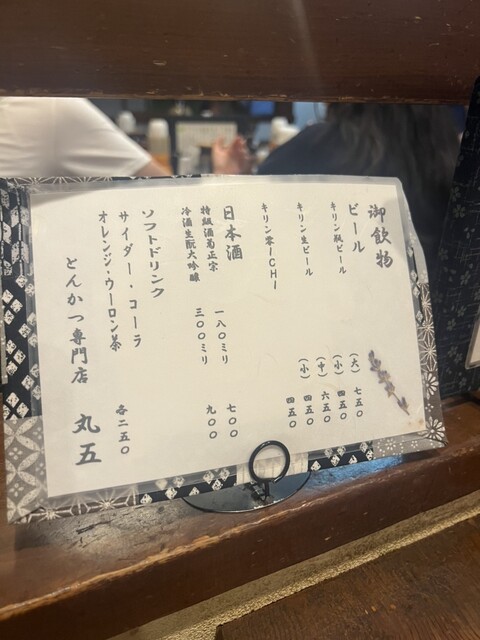 御飲物
ビール
キリン瓶ビール (大) 七五〇
(小) 四五〇
キリン生ビール (中) 六五〇
(小) 四五〇
キリン零ICHI 四五〇
日本酒
特級酒菊正宗 一八〇ミリ 七〇〇
冷酒生酛大吟醸 三〇〇ミリ 九〇〇
ソフトドリンク
サイダー・コーラ
オレンジ・ウーロン茶 各二五〇
とんかつ専門店 丸五